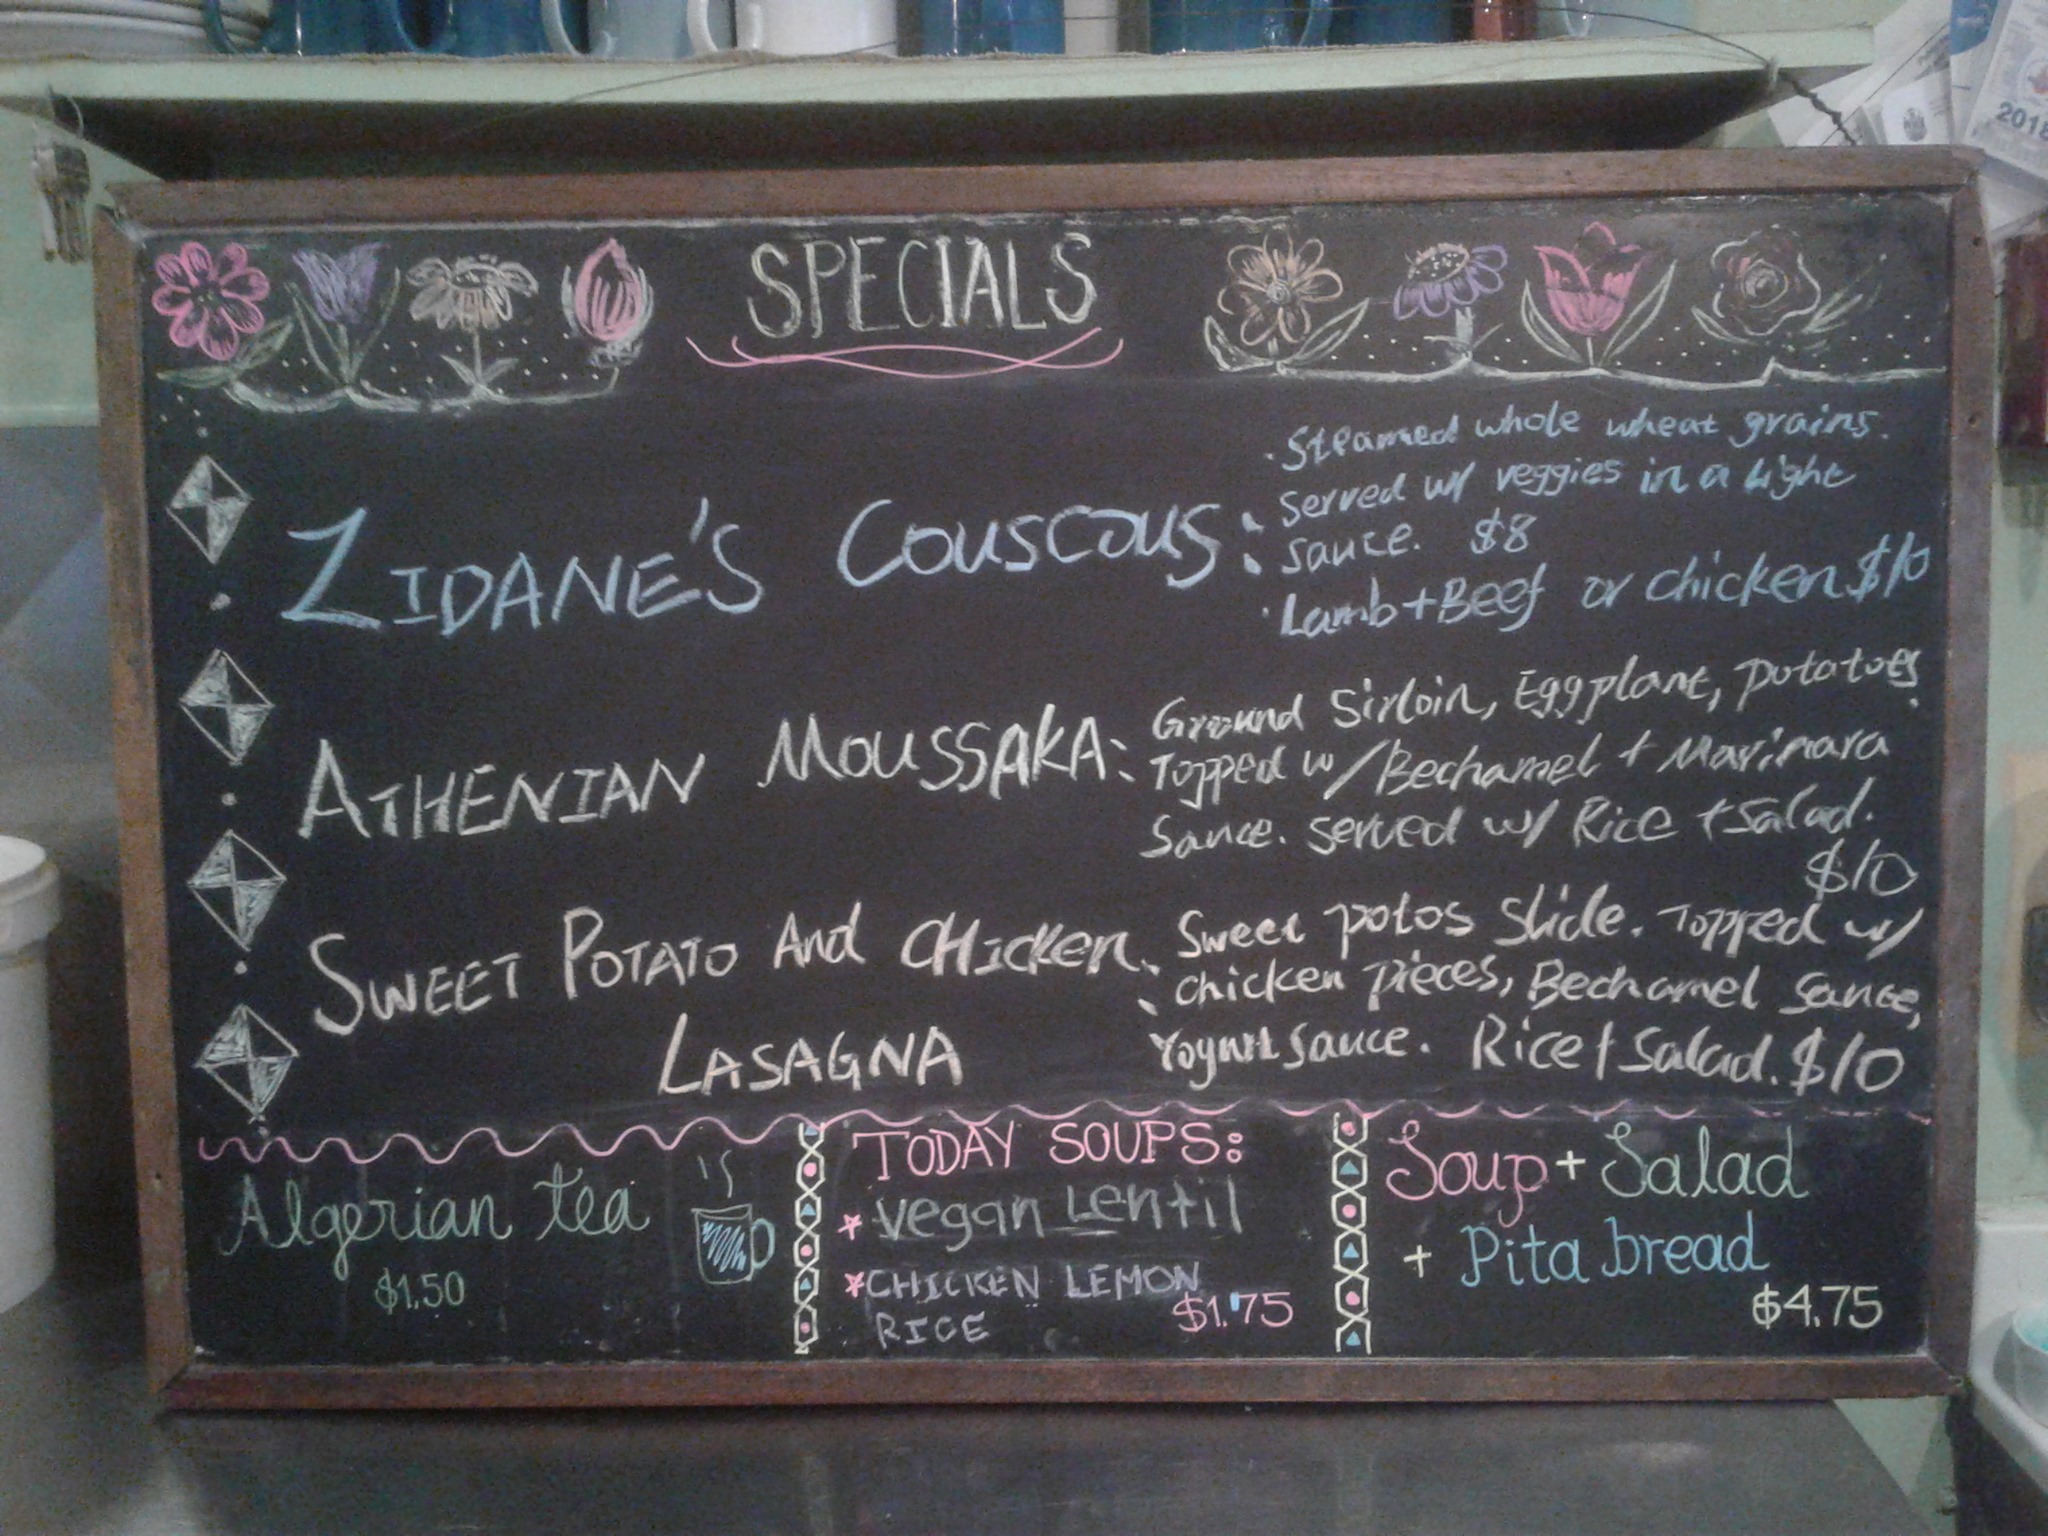 2018
SPECIALS
ZIDANE'S COUSCOUS:
. Steamed whole wheat grains.
Served w/ veggies in a Light
Sauce. $8
. Lamb + Beef or chicken $10
ATHENIAN MOUSSAKA:
Ground Sirloin, Eggplant, potatoes.
Topped w/ Bechamel + Marinara
Sauce. Served w/ Rice + Salad.
$10
SWEET POTATO And CHicken
LASAGNA
: Sweet potos Slide. Topped w/
chicken pieces, Bechamel sauce,
Yogurt sauce. Rice + Salad. $10
Algerian tea
$1.50
TODAY SOUPS:
* vegan Lentil
* CHICKEN LEMON
RICE $1.75
Soup + Salad
+ Pita bread
$4.75